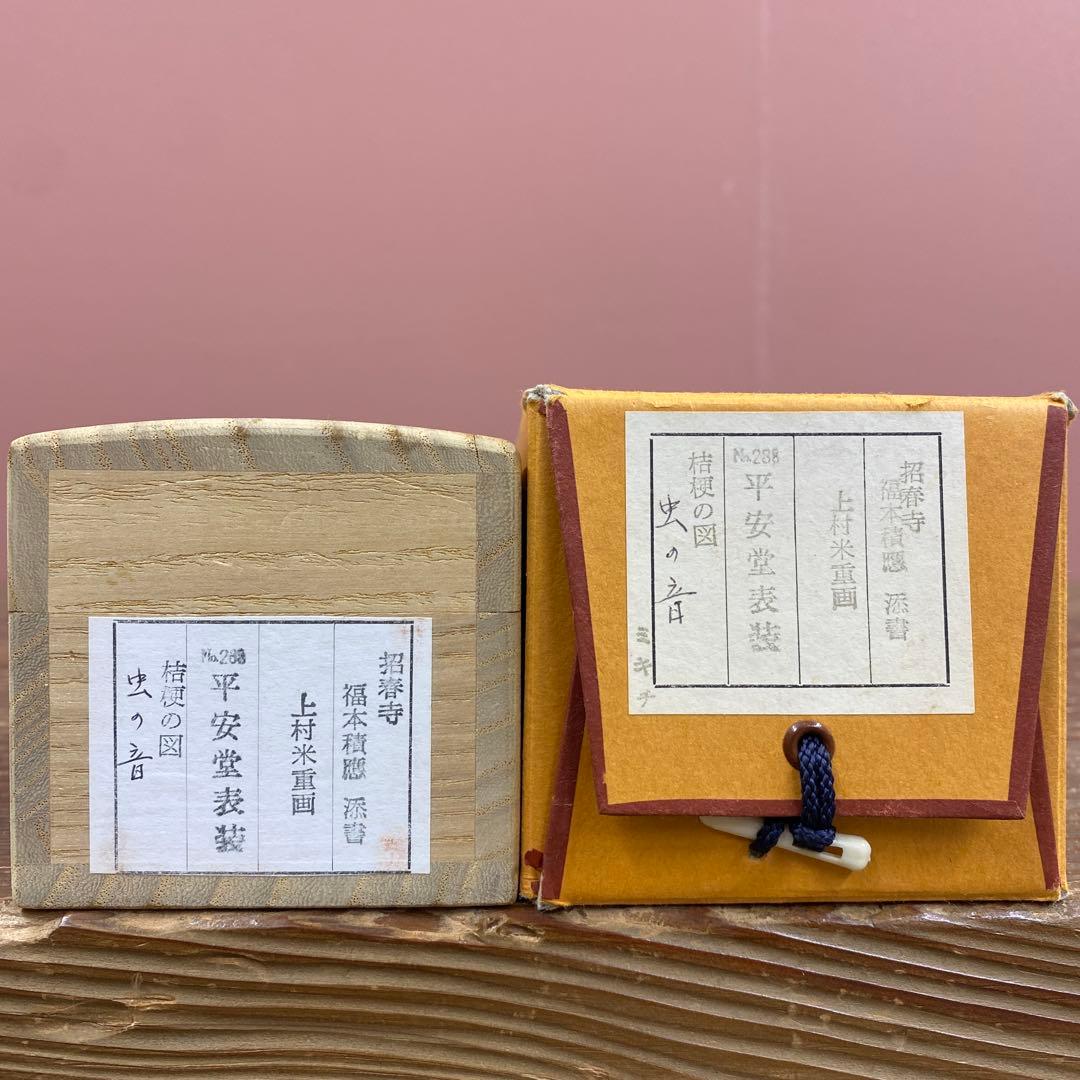 招春寺
福本積應 添書
上村米重画
No.288
平安堂表装
桔梗の図
虫の音
招春寺
福本積應 添書
上村米重画
No.288
平安堂表装
桔梗の図
虫の音
ミキチ